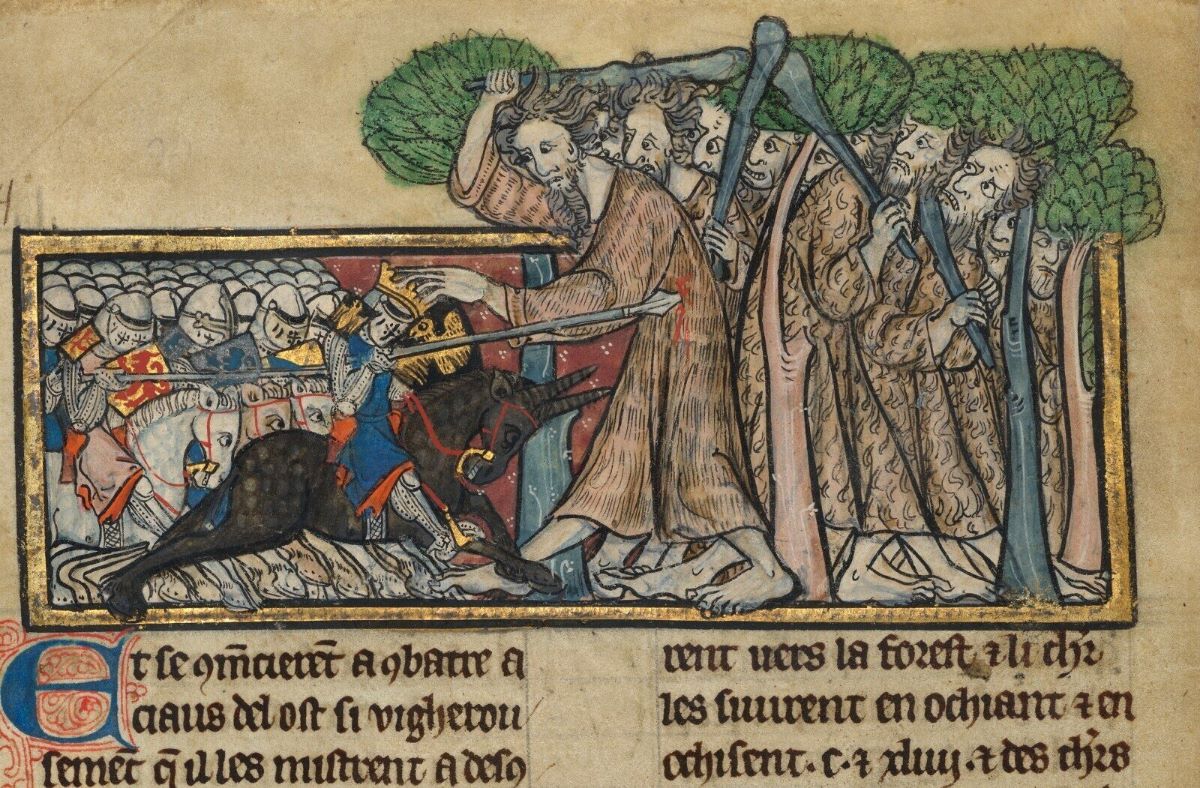 Et se ꝯm̄cieret̄ a ꝯbatre a
ciaus del ost si vigherou
semet̄ q̄ il les mistrent a desꝯ
rent uers la forest ⁊ li chr̄
les suiuirent en ochiant ⁊ en
ochisent .c. ⁊ xliiij. ⁊ des chr̄s